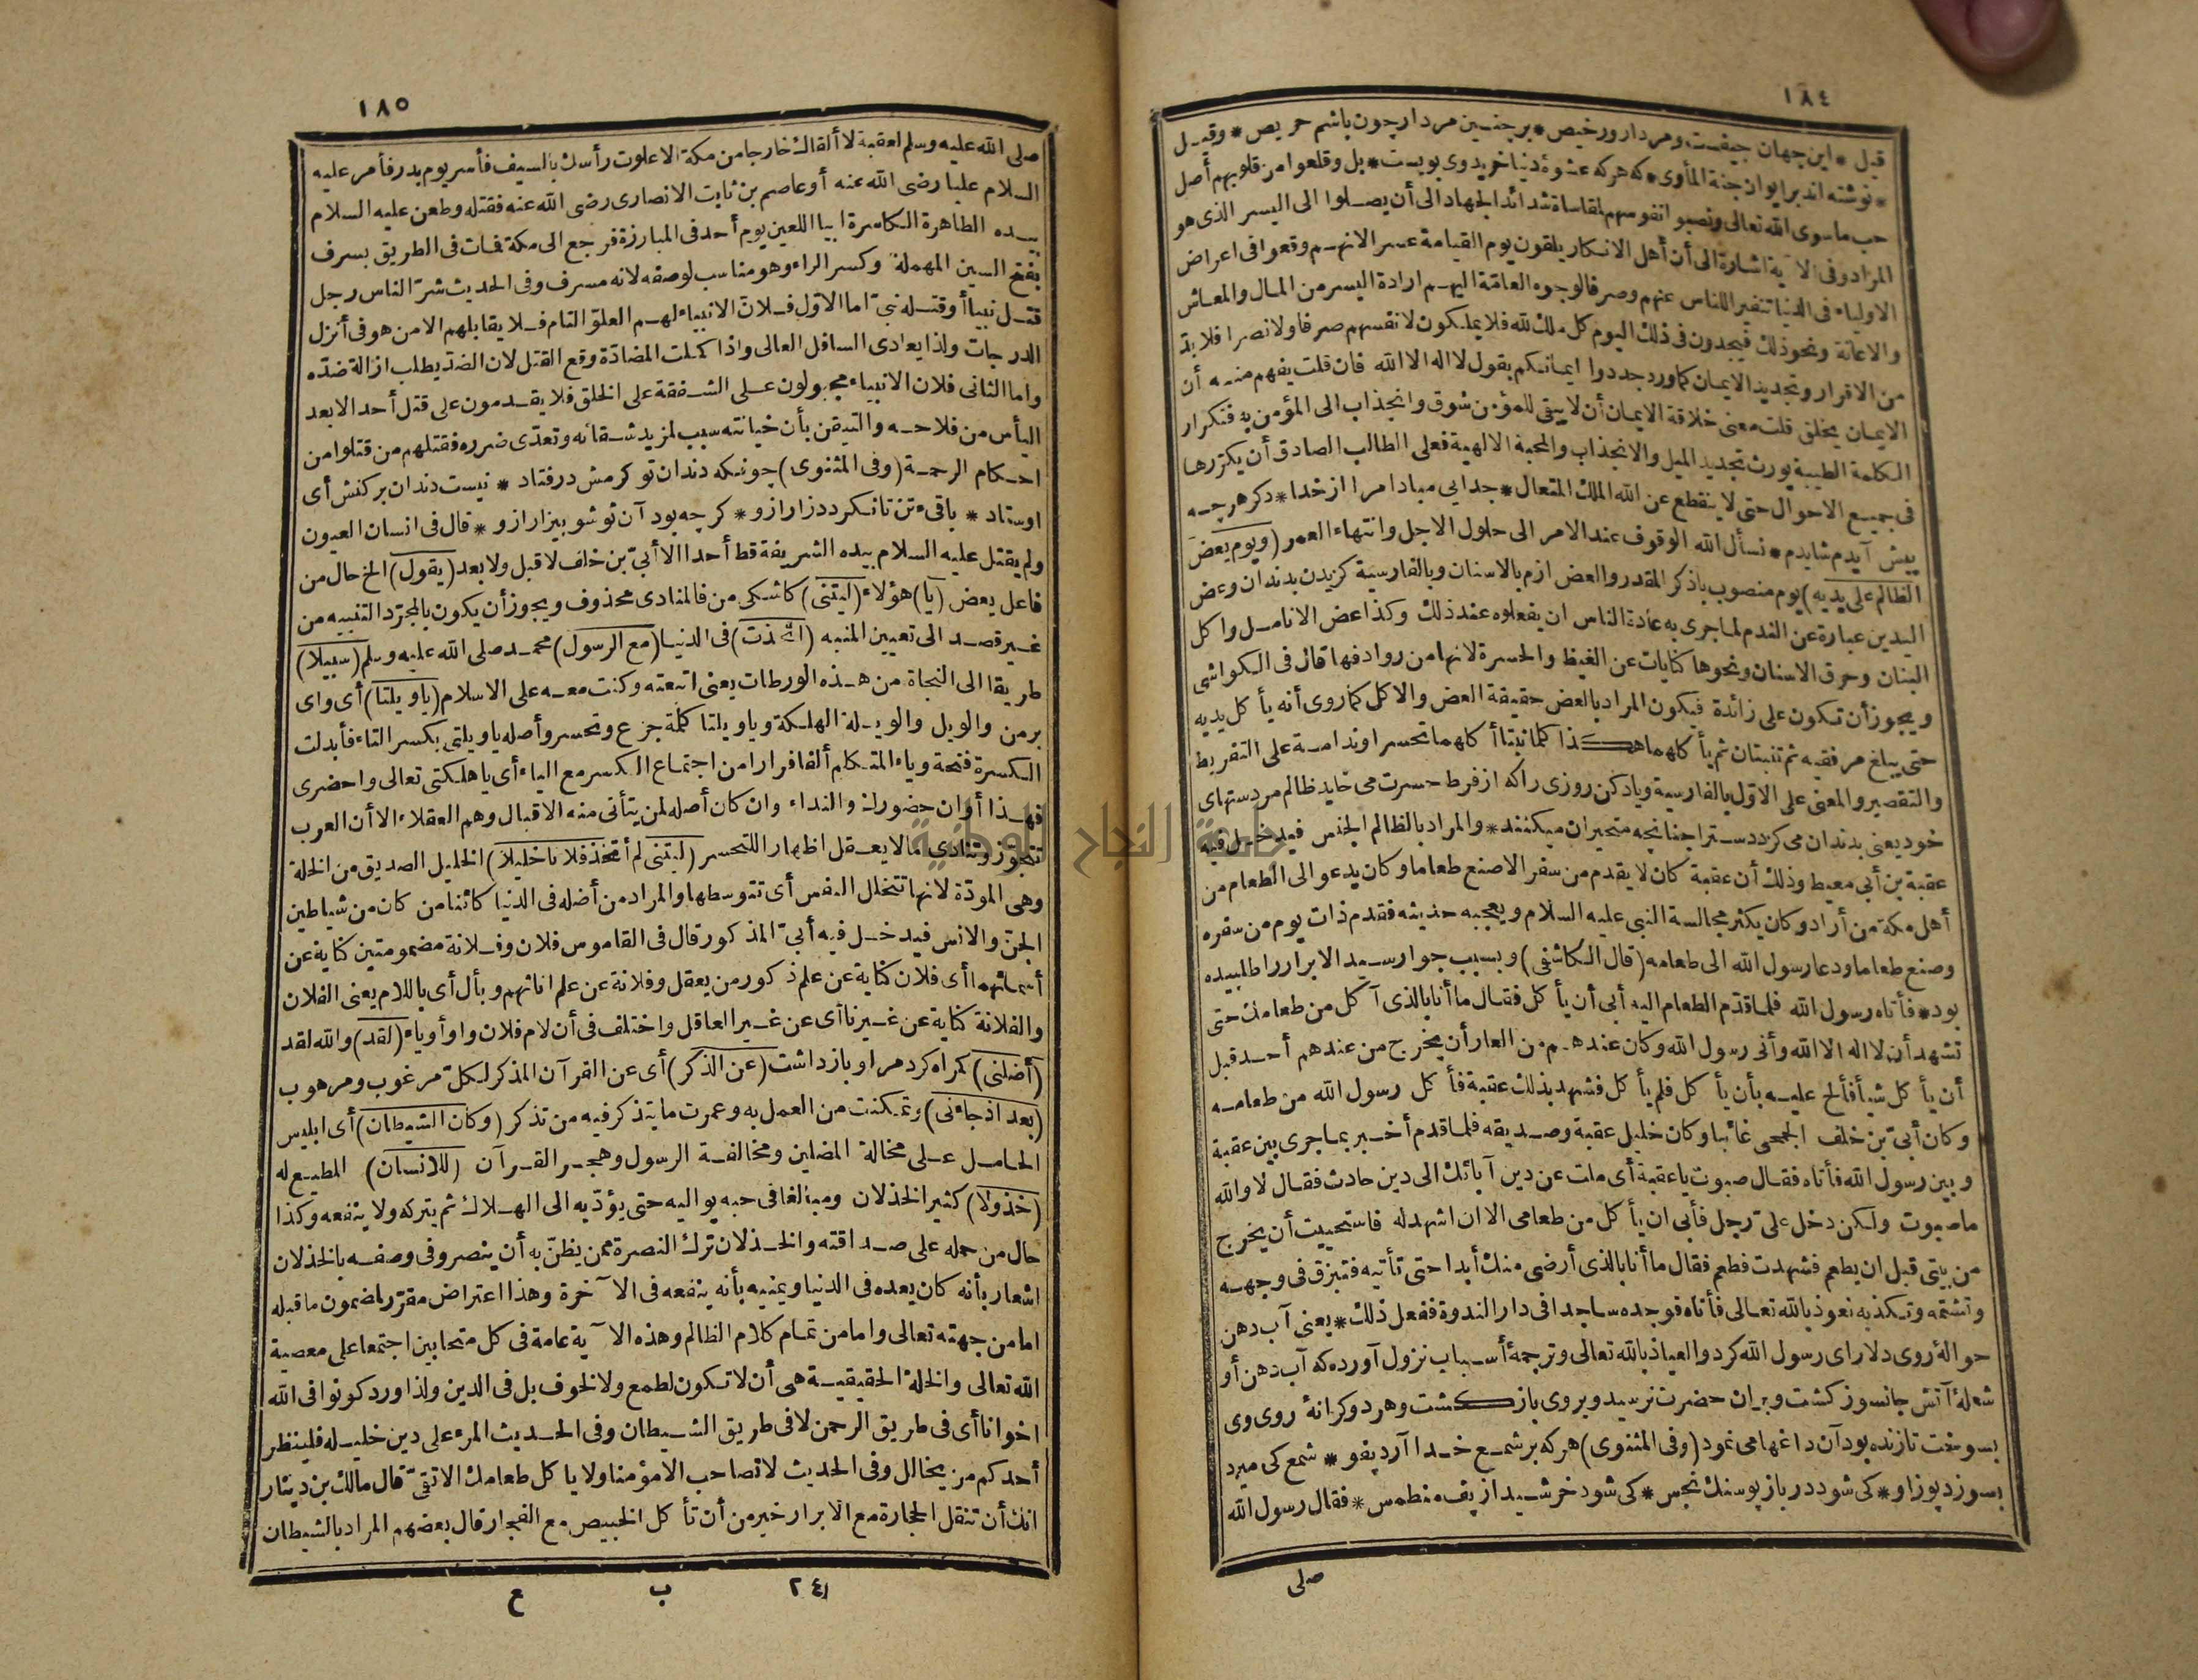 ١٨٤
قيل * اين جهان جيفست ومردار ورخيص * بر چنين مردار چون باشم حريص * وقيل
* نوشته اند بر ايوان جنة المأوى * كه هر كه عشوهٔ دنيا خريد وى بويست * بل وقلعوا من قلوبهم أصل
حب ماسوى الله تعالى ونصبوا انفوسهم لمقاساة شدائد الجهاد الى أن يصلوا الى اليسر الذى هو
المراد وفى الآية اشارة الى أن أهل الانكار يلقون يوم القيامة عسرا لانهم وقعوا فى اعراض
الاولياء فى الدنيا تنفيرا للناس عنهم وصرفا لوجوه العامّة اليهم ارادة اليسر من المال والمعاش
والاعانة ونحو ذلك فيجدون فى ذلك اليوم كل ملك لله فلا يملكون لانفسهم صرفا ولا نصرا فلا بدّ
من الاقرار وتجديد الايمان كما ورد جددوا ايمانكم بقول لا اله الا الله فان قلت يفهم منه أن
الايمان يخلق قلت معنى خلاقة الايمان أن لا يبقى للمؤمن شوق وانجذاب الى المؤمن به فتكرار
الكلمة الطيبة يورث تجديد الميل والانجذاب والمحبة الالهية فعلى الطالب الصادق أن يكرّرها
فى جميع الاحوال حتى لا ينقطع عن الله الملك المتعال * جدايى مبادا مرا از خدا * دكر هر چه
پيش آيدم شايدم * نسأل الله الوقوف عند الامر الى حلول الاجل وانتهاء العمر (ويوم يعض
الظالم على يديه) يوم منصوب باذكر المقدر والعض ازم بالاسنان وبالفارسية كزيدن بدندان وعض
اليدين عبارة عن الندم لما جرى به عادة الناس ان يفعلوه عند ذلك وكذا عض الانامل واكل
البنان وحرق الاسنان ونحوها كنايات عن الغيظ والحسرة لانها من روادفها قال فى الكواشى
ويجوز أن تكون على زائدة فيكون المراد بالعض حقيقة العض والاكل كما روى أنه يأكل يديه
حتى يبلغ مرفقيه ثم تنبتان ثم يأكلهما هكذا كلما نبتا أكلهما تحسرا وندامة على التفريط
والتقصير والمعنى على الاوّل بالفارسية وياد كن روزى را كه از فرط حسرت مى خايد ظالم مر دستهاى
خود يعنى بدندان مى كزد دستر اجنانچه متحيران ميكنند * والمراد بالظالم الجنس فيدخل فيه
عقبة بن أبى معيط وذلك أن عقبة كان لا يقدم من سفر الا صنع طعاما وكان يدعو الى الطعام من
أهل مكة من أراد وكان يكثر مجالسة النبى عليه السلام ويعجبه حديثه فقدم ذات يوم من سفره
وصنع طعاما ودعا رسول الله الى طعامه (قال الكاشفى) وبسبب جوار سيد الابرار را طلبيده
بود * فأتاه رسول الله فلما قدّم الطعام اليه أبى أن يأكل فقال ما أنا بالذى آكل من طعامك حتى
تشهد أن لا اله الا الله وأنى رسول الله وكان عندهم من العار أن يخرج من عندهم أحد قبل
أن يأكل شيأ فألح عليه بأن يأكل فلم يأكل فشهد بذلك عقبة فأكل رسول الله من طعامه
وكان أبىّ بن خلف الجمحى غائبا وكان خليل عقبة وصديقه فلما قدم أخبر بما جرى بين عقبة
وبين رسول الله فأتاه فقال صبوت يا عقبة أى ملت عن دين آبائك الى دين حادث فقال لا والله
ما صبوت ولكن دخل علىّ رجل فأبى ان يأكل من طعامى الا ان اشهد له فاستحييت أن يخرج
من بيتى قبل ان يطعم فشهدت فطعم فقال ما أنا بالذى أرضى منك أبدا حتى تأتيه فتبزق فى وجهه
وتشتمه وتكذبه نعوذ بالله تعالى فأتاه فوجده ساجدا فى دار الندوة ففعل ذلك * يعنى آب دهن
حوالهٔ روى دلاراى رسول الله كرد والعياذ بالله تعالى وترجمهٔ أسباب نزول آورده كه آب دهن أو
شعلهٔ آتش جانسوز كشت وبران حضرت نرسيد وبروى باز كشت وهر دو كرانهٔ روى وى
بسوخت تا زنده بود آن داغها مى نمود (وفى المثنوى) هر كه بر شمع خدا آرد پفو * شمع كى ميرد
بسوزد پوز او * كى شود دريا ز پوسنك نجس * كى شود خرشيد از پف منطمس * فقال رسول الله
صلى
١٨٥
صلى الله عليه وسلم لعقبة لا ألقاك خارجا من مكة الا علوت رأسك بالسيف فأسر يوم بدر فأمر عليه
السلام عليا رضى الله عنه أو عاصم بن ثابت الانصارى رضى الله عنه فقتله وطعن عليه السلام
بيده الطاهرة الكاسرة ابيا اللعين يوم أحد فى المبارزة فرجع الى مكة فمات فى الطريق بسرف
بفتح السين المهملة وكسر الراء وهو مناسب لوصفه لانه مسرف وفى الحديث شرّ الناس رجل
قتل نبيا أو قتله نبىّ اما الاوّل فلانّ الانبياء لهم العلوّ التام فلا يقابلهم الا من هو فى أنزل
الدرجات ولذا يعادى السافل العالى واذا كملت المضادّة وقع القتل لان الضدّ يطلب ازالة ضدّه
واما الثانى فلان الانبياء مجبولون على الشفقة على الخلق فلا يقدمون على قتل أحد الا بعد
اليأس من فلاحه والتيقن بأن خيانته سبب لمزيد شقائه وتعدّى ضرره فقتلهم من قتلوا من
احكام الرحمة (وفى المثنوى) چونكه دندان تو كرمش در فتاد * نيست دندان بر كنش أى
اوستاد * باقىء تن تا نكردد زار ازو * كرچه بود آن تو شو بيزار ازو * قال فى انسان العيون
ولم يقتل عليه السلام بيده الشريفة قط أحدا الا أبىّ بن خلف لا قبل ولا بعد (يقول) الخ حال من
فاعل يعض (يا) هؤلاء (ليتنى) كاشكى من فالمنادى محذوف ويجوز أن يكون يا لمجرّد التنبيه من
غير قصد الى تعيين المنبه (اتخذت) فى الدنيا (مع الرسول) محمد صلى الله عليه وسلم (سبيلا)
طريقا الى النجاة من هذه الورطات يعنى اتبعته وكنت معه على الاسلام (يا ويلتا) أى واى
بر من والويل والويلة الهلكة ويا ويلتا كلمة جزع وتحسر وأصله يا ويلتى بكسر التاء فأبدلت
الكسرة فتحة وياء المتكلم ألفا فرارا من اجتماع الكسر مع الياء أى يا هلكتى تعالى واحضرى
فهذا أوان حضورك والنداء وان كان أصله لمن يتأتى منه الاقبال وهم العقلاء الا أن العرب
تتجوز وتنادى ما لا يعقل اظهارا للتحسر (ليتنى لم أتخذ فلانا خليلا) الخليل الصديق من الخلة
وهى المودّة لانها تتخلل النفس أى تتوسطها والمراد من أضله فى الدنيا كائنا من كان من شياطين
الجنّ والانس فيدخل فيه أبىّ المذكور قال فى القاموس فلان وفلانة مضمومتين كناية عن
أسمائهما أى فلان كناية عن علم ذكور من يعقل وفلانة عن علم اناثهم وبأل أى باللام يعنى الفلان
والفلانة كناية عن غيرنا أى عن غير العاقل واختلف فى أن لام فلان واو أو ياء (لقد) والله لقد
(أضلنى) كمراه كرد مرا وباز داشت (عن الذكر) أى عن القرآن المذكر لكلّ مرغوب ومرهوب
(بعد اذ جاءنى) وتمكنت من العمل به وعمرت ما يتذكر فيه من تذكر (وكان الشيطان) أى ابليس
الحامل على مخالة المضلين ومخالفة الرسول وهجر القرآن (للانسان) المطيع له
(خذولا) كثير الخذلان ومبالغا فى حبه يواليه حتى يؤدّيه الى الهلاك ثم يتركه ولا ينفعه وكذا
حال من حمله على صداقته والخذلان ترك النصرة ممن يظنّ به أن ينصر وفى وصفه بالخذلان
اشعار بأنه كان يعده فى الدنيا ويمنيه بأنه ينفعه فى الآخرة وهذا اعتراض مقرّر لمضمون ما قبله
اما من جهته تعالى واما من تمام كلام الظالم وهذه الآية عامة فى كل متحابين اجتمعا على معصية
الله تعالى والخلة الحقيقية هى أن لا تكون لطمع ولا لخوف بل فى الدين ولذا ورد كونوا فى الله
اخوانا أى فى طريق الرحمن لا فى طريق الشيطان وفى الحديث المرء على دين خليله فلينظر
أحدكم من يخالل وفى الحديث لا تصاحب الا مؤمنا ولا ياكل طعامك الا تقىّ قال مالك بن دينار
انك أن تنقل الحجارة مع الابرار خير من أن تأكل الخبيص مع الفجار قال بعضهم المراد بالشيطان
٢٤ ب ع